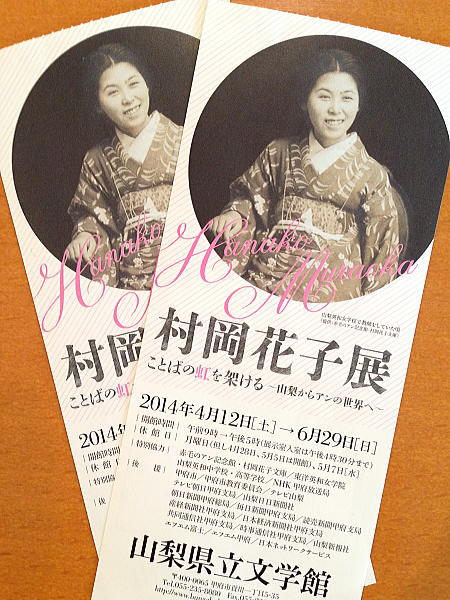 Hanako
Muraoka
山梨英和女学校で教師をしていた頃
(提供:赤毛のアン記念館・村岡花子文庫)
村岡花子展
ことばの虹を架ける 〜山梨からアンの世界へ〜
2014年4月12日[土]→6月29日[日]
[開館時間] 午前9時→午後5時(展示室入室は午後4時30分まで)
[休館日] 月曜日(但し4月28日、5月5日は開館)、5月7日[水]
[特別協力] 赤毛のアン記念館・村岡花子文庫/東洋英和女学院
山梨英和中学校・高等学校/NHK甲府放送局
[後援] 甲府市/甲府市教育委員会/テレビ山梨
テレビ朝日甲府支局/山梨日日新聞社
朝日新聞甲府総局/毎日新聞甲府支局/読売新聞甲府支局
産経新聞甲府支局/日本経済新聞社甲府支局
共同通信社甲府支局/時事通信社甲府支局/山梨新報社
エフエム富士/エフエム甲府/日本ネットワークサービス
山梨県立文学館
〒400-0065 甲府市貢川一丁目5-35
Tel.055-235-8080
Hanako
村岡
ことばの虹
2014年
[開館時
[休館日
[特別協
[後